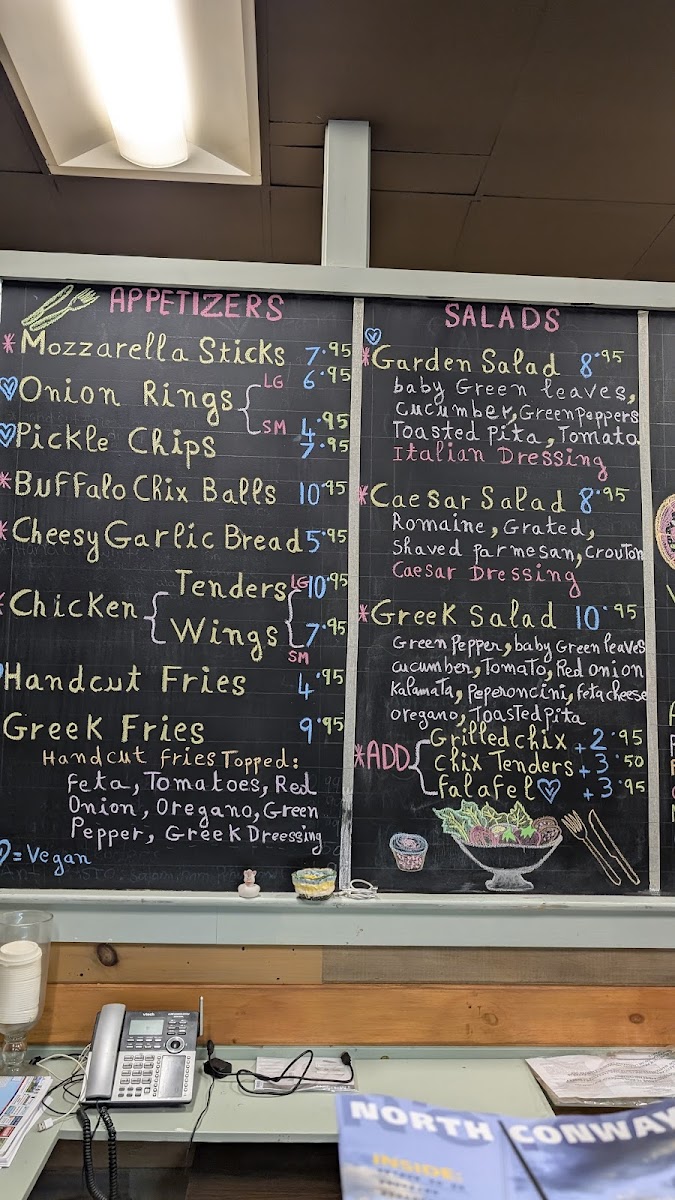 APPETIZERS
* Mozzarella Sticks 7.95
Onion Rings LG 6.95
SM 4.95
Pickle Chips 7.95
* Buffalo Chix Balls 10.95
* Cheesy Garlic Bread 5.95
* Chicken Tenders LG 10.95
Wings SM 7.95
Handcut Fries 4.95
Greek Fries 9.95
Handcut fries Topped:
feta, Tomatoes, Red
Onion, Oregano, Green
Pepper, Greek Dreessing
= Vegan
SALADS
* Garden Salad 8.95
baby Green leaves,
Cucumber, Green peppers
Toasted pita, Tomato
Italian Dressing
* Caesar Salad 8.95
Romaine, Grated,
Shaved parmesan, crouton
Caesar Dressing
* Greek Salad 10.95
Green Pepper, baby Green leaves
cucumber, Tomato, Red onion
Kalamata, Peperoncini, feta cheese
oregano, Toasted pita
* ADD Grilled chix + 2.95
chix Tenders + 3.50
falafel + 3.95
vtech
NORTH CONWAY
INSIDE: